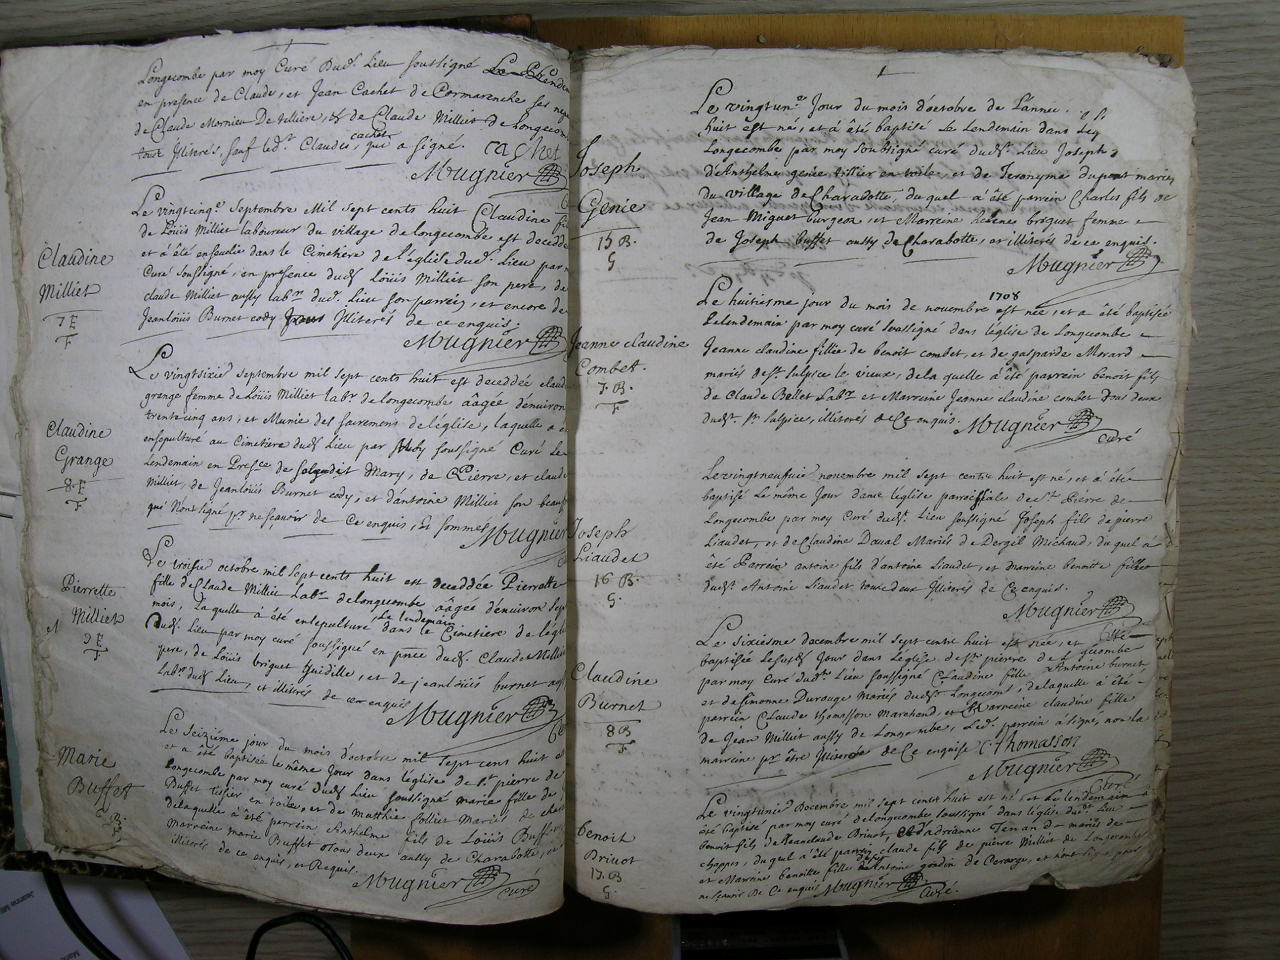 Longecombe par moy Curé dud. Lieu soussigné
en presence de Claude, et Jean Cachet de Cormarenche
de Claude Mornieu De tellière, & de Claude Milliet de Longecom
tous Illiterés, sauf led.t Claude cachet, qui a signé. Cachet
Mugnier
Claudine
Milliet
7 E
F
Le vingtcinq.e septembre Mil sept cents huit Claudine fil
de Loüis Milliet laboureur du village de longecombe est decedé
et a été ensevelie dans le Cimetière de l'église dud. Lieu par m
Curé soussigné, en présence dud. Loüis Milliet son pere, de
claude Milliet aussy lab.r dud. Lieu son parrein, et encore de
Jeanloüis Burnet cody Illiterés de ce enquis.
Mugnier
Claudine
Grange
8 E
F
Le vingtsixiè septembre mil sept cents huit est deceddée claud
grange femme de Loüis Milliet lab.r de longecombe aâgée d'environ
trentecinq ans, et Munie des sacremens de l'église, laquelle a
ensepulturé au Cimetière dud. Lieu par Moy soussigné Curé Le
Lendemain en Presce de Mary, de Pierre, et claud
Milliet, de Jeanloüis Burnet cody, et d'antoine Milliet son beau
qui N'ont signé p.r ne scavoir de Ce enquis, Et sommes Mugnier
Pierrette
Milliet
9 E
F
Le troisie octobre mil sept cents huit est deceddée Pierrette
fille de Claude Milliet Lab.r de longecombe aagée d'environ sept
mois, La quelle a été ensepulturé Le lendemain dans le Cimetière de l'égli
Dud. Lieu par moy curé soussigné en pnce dud. Claude Milliet
pere, de Loüis briquet Guidille, et de jeanloüis burnet
Lab.rs dud. Lieu, et illiterés de ce enquis
Mugnier
Marie
Buffet
6 B.
F
Le Seizième jour du mois d'octobre mil sept cents huit e
et a été baptisée le même Jour dans l'eglise de s.t pierre de
Longecombe par moy curé dud. Lieu soussigné marie fille de
Buffet tissier en toile, et de Matthie follier Mariés de cha
delaquelle a été perrein Anthelme fils de Loüis Buffet
Marreine marie Buffet tous deux aussy de Charabotte,
illiterés de ce enquis, et Requis.
Mugnier Curé
Joseph
Genie
15 B.
G
Le vingtun.e Jour du mois d'octobre de l'annee
huit est né, et a été baptisé Le Lendemain dans
Longecombe par moy soubsigné curé dud. Lieu Joseph
d'Anthelme genie tissier en toile et de Jeronyme dupont mariés
du village de Charabotte, du quel a été parrein Charles fils de
Jean Miguet burgeon, et Marreine helene briguet femme
de Joseph buffet aussy de Charabotte, et illiterés de ce enquis.
Mugnier
Jeanne claudine
Combet.
7 B.
F
1708
Le huitiesme jour du mois de novembre est née, et a été baptisée
Lelendemain par moy curé soussigné dans l'eglise de Longecombe
Jeanne claudine fille de benoit combet, et de gasparde Morard
mariés de s.t sulpice le vieux, de la quelle a été parrein benoit fils
de Claude Bellet Lab.r et Marreine Jeanne claudine combet tous deux
dud.t s.t sulpice, illiterés de Ce enquis. Mugnier
curé
Joseph
Liaudet
16 B.
G.
Le vingtneufvie novembre mil sept cents huit est né, et a été
baptisé Le même Jour dans l'église parroissiale de s.t Pierre de
Longecombe par moy Curé dud.t Lieu soussigné Joseph fils de pierre
Liaudet, et de Claudine Mariés de Dergil Michaud, du quel a
été Parrein antoine fils d'antoine Liaudet, et marreine benoite fille
dud.t Antoine Liaudet tous deux Illiterés de Ce enquis.
Mugnier
Curé
Claudine
Burnet
8 B
F
Le sixiesme decembre mil sept cents huit est née, et
baptisée Jour dans L'église de s.t pierre de Longecombe
par moy Curé dud.t Lieu soussigné Claudine fille d'Antoine burnet
et de Simonne Durouge Mariés dud.t Longecom, de laquelle a été
parrein Claude thomasson Marchand, et Marreine claudine fille
de Jean Milliet aussy de Longecombe, Led. parrein a signé, non la
marreine p.r être Illiterée de Ce enquise C Thomasson
Mugnier
Curé
benoit
Brinot
17 B
G.
Le vingtunie Decembre mil sept cents huit est né et le lendemain a
été baptisé par moy curé de Longecombe soussigné dans l'eglise dud. Lieu
benoit fils de Jeanclaude Brinot, et d'adrianne Tenand mariés de
chappes, du quel a été parrein claude fils de pierre Milliet de Longecombe
et Marreine benoitte fille d'Antoine godin de et n'ont signé pour
ne scavoir de Ce enquis Mugnier
Curé.